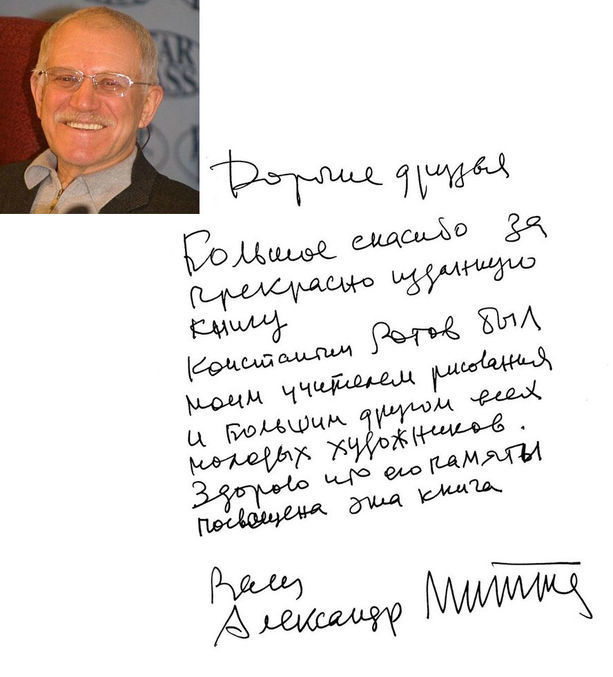 Дорогие друзья
Большое спасибо за
прекрасно изданную
книгу
Константин Ротов был
моим учителем рисования
и большим другом всех
молодых художников.
Здорово что его памяти
посвящена эта книга
Ваш
Александр Митта